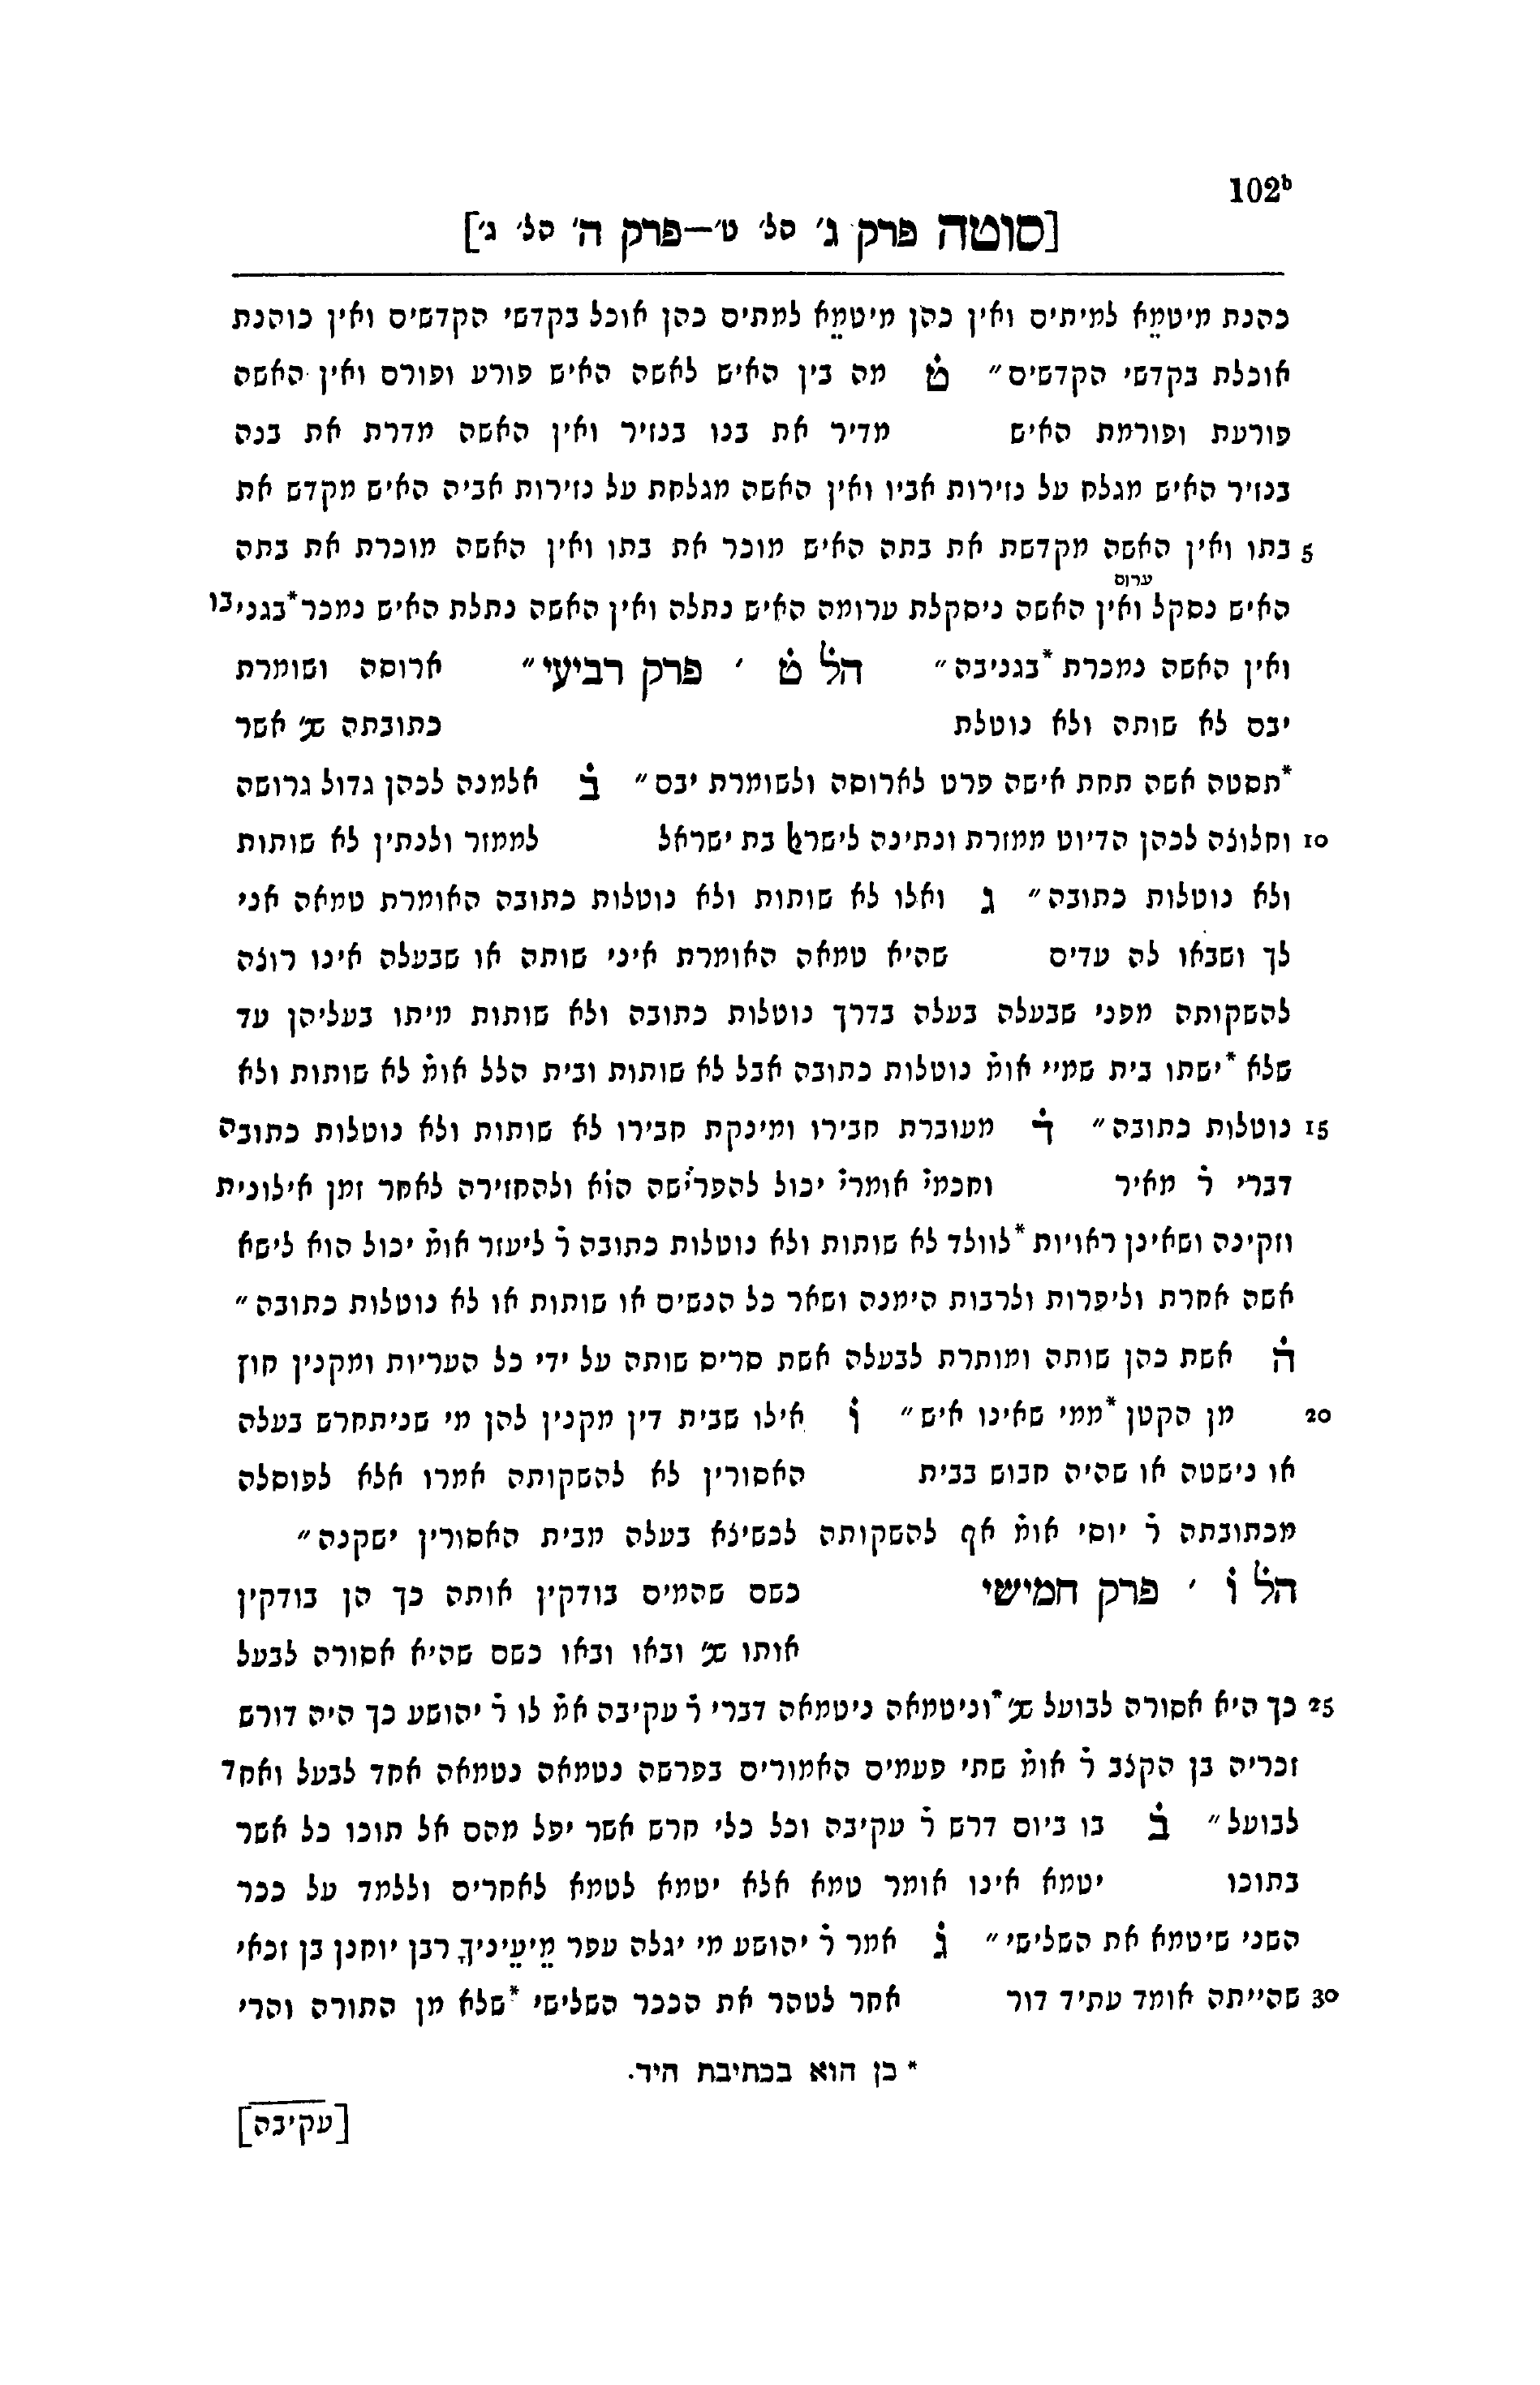 102ᵇ
[סוטה פרק ג׳ הל׳ ט׳—פרק ה׳ הל׳ ג׳]
כהנת מיטמֵא למיתים ואין כהן מיטמֵא למתים כהן אוכל בקדשי הקדשים ואין כוהנת
אוכלת בקדשי הקדשים״ ט̇ מה בין האיש לאשה האיש פורע ופורם ואין האשה
פורעת ופורמת האיש מדיר את בנו בנזיר ואין האשה מדרת את בנה
בנזיר האיש מגלח על נזירות אביו ואין האשה מגלחת על נזירות אביה האיש מקדש את
5 בתו ואין האשה מקדשת את בתה האיש מוכר את בתו ואין האשה מוכרת את בתה
ערום
האיש נסקל ואין האשה ניסקלת ערומה האיש נתלה ואין האשה נתלת האיש נמכר *בגניבו
ואין האשה נמכרת *בגניבה״ הל ט̇ ׳ פרק רביעי״ ארוסה ושומרת
יבם לא שותה ולא נוטלת כתובתה שנ׳ אשר
*תסטה אשה תחת אישה פרט לארוסה ולשומרת יבם״ ב̇ אלמנה לכהן גדול גרושה
10 וחלוצה לכהן הדיוט ממזרת ונתינה לישראל בת ישראל לממזר ולנתין לא שותות
ולא נוטלות כתובה״ ג̇ ואלו לא שותות ולא נוטלות כתובה האומרת טמאה אני
לך ושבאו לה עדים שהיא טמאה האומרת איני שותה או שבעלה אינו רוצה
להשקותה מפני שבעלה בעלה בדרך נוטלות כתובה ולא שותות מיתו בעליהן עד
שלא *ישתו בית שמיי אומ̇ נוטלות כתובה אבל לא שותות ובית הלל אומ̇ לא שותות ולא
15 נוטלות כתובה״ ד̇ מעוברת חבירו ומינקת חבירו לא שותות ולא נוטלות כתובה
דברי ר̇ מאיר וחכמי̇ אומרי̇ יכול להפרישה הוא ולהחזירה לאחר זמן אילונית
וזקינה ושאינן ראויות *לוולד לא שותות ולא נוטלות כתובה ר̇ ליעזר אומ̇ יכול הוא לישא
אשה אחרת וליפרות ולרבות הימנה ושאר כל הנשים או שותות או לא נוטלות כתובה״
ה̇ אשת כהן שותה ומותרת לבעלה אשת סריס שותה על ידי כל העריות ומקנין חוץ
20 מן הקטן *ממי שאינו איש״ ו̇ אילו שבית דין מקנין להן מי שניתחרש בעלה
או נישטה או שהיה חבוש בבית האסורין לא להשקותה אמרו אלא לפוסלה
מכתובתה ר̇ יוסי אומ̇ אף להשקותה לכשיצא בעלה מבית האסורין ישקנה״
הל ו̇ ׳ פרק חמישי כשם שהמים בודקין אותה כך הן בודקין
אותו שנ׳ ובאו ובאו כשם שהיא אסורה לבעל
25 כך היא אסורה לבועל שנ׳ *וניטמאה ניטמאה דברי ר̇ עקיבה אמ̇ לו ר̇ יהושע כך היה דורש
זכריה בן הקצב ר̇ אומ̇ שתי פעמים האמורים בפרשה נטמאה נטמאה אחד לבעל ואחד
לבועל״ ב̇ בו ביום דרש ר̇ עקיבה וכל כלי חרש אשר יפל מהם אל תוכו כל אשר
בתוכו יטמא אינו אומר טמא אלא יטמא לטמא לאחרים וללמד על ככר
השני שיטמא את השלישי״ ג̇ אמר ר̇ יהושע מי יגלה עפר מֵיעֵיניךָ רבן יוחנן בן זכאי
30 שהייתה אומד עתיד דור אחר לטהר את הככר השלישי *שלא מן התורה והרי
* כן הוא בכתיבת היד.
[עקיבה]